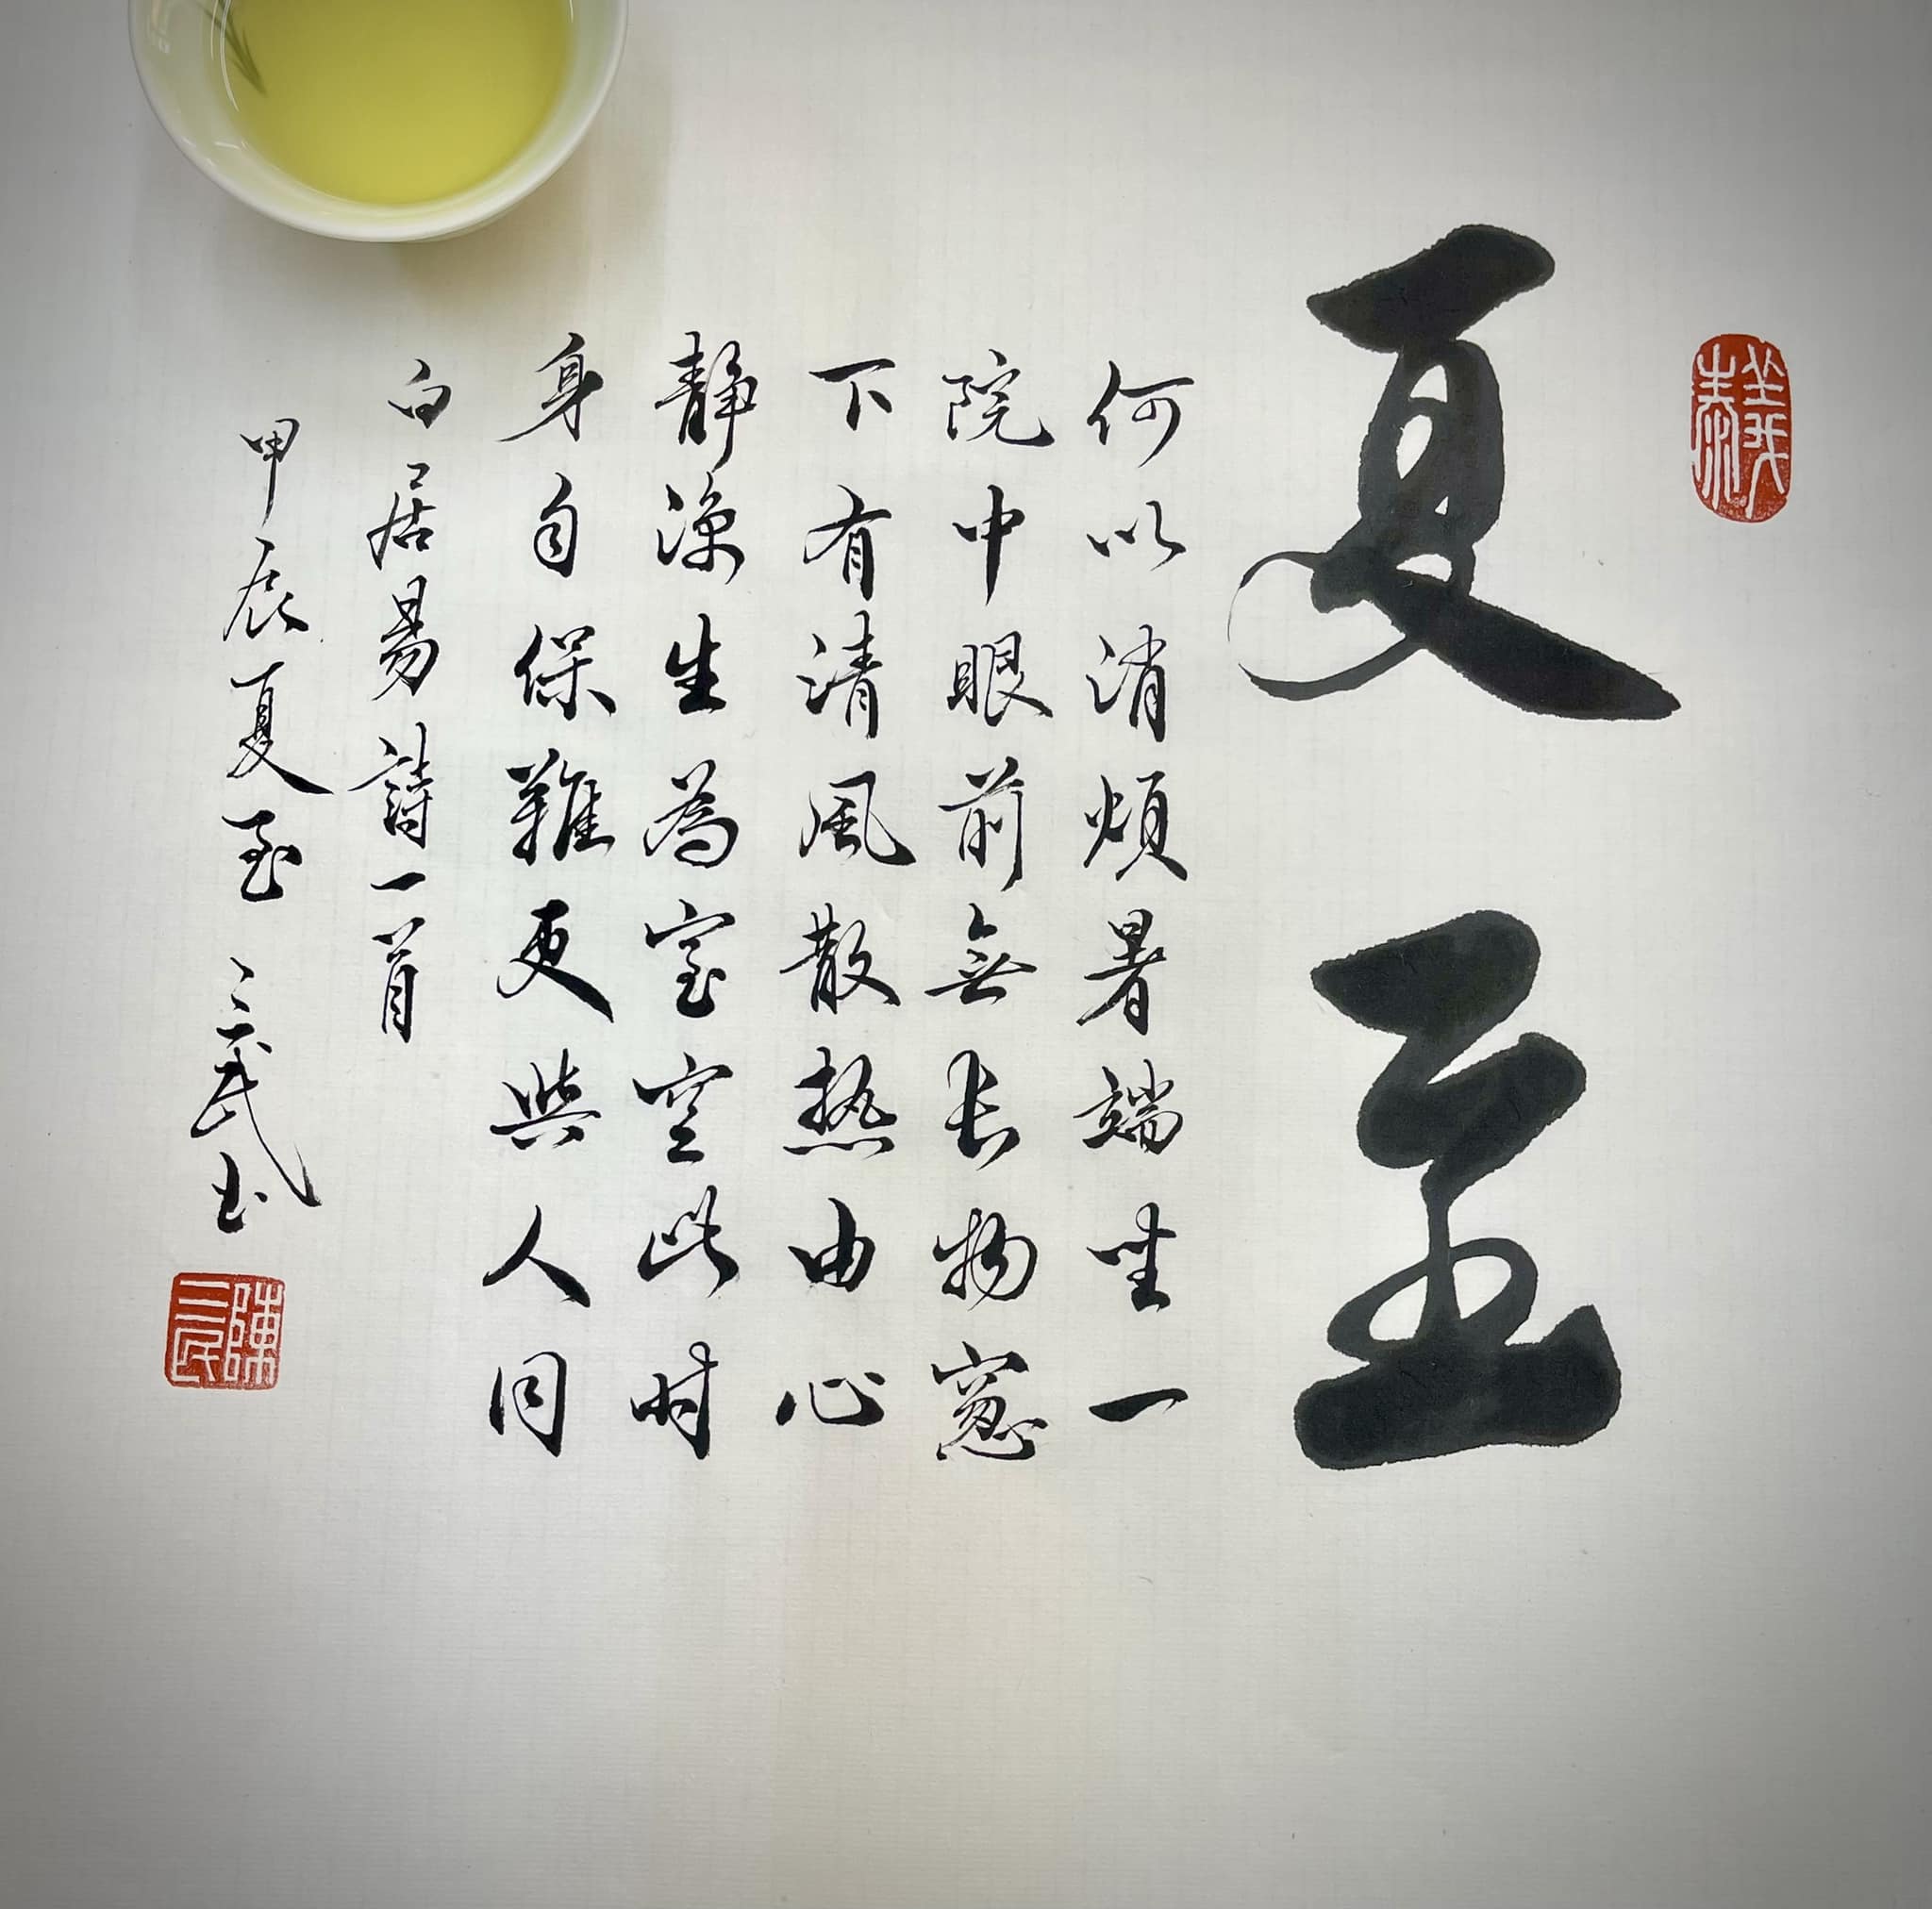 夏至
何以消煩暑端坐一
院中眼前無長物窻
下有清風散热由心
静涼生為室空此时
身自保難更與人同
白居易詩一首
甲辰夏至 三民书
陳三民